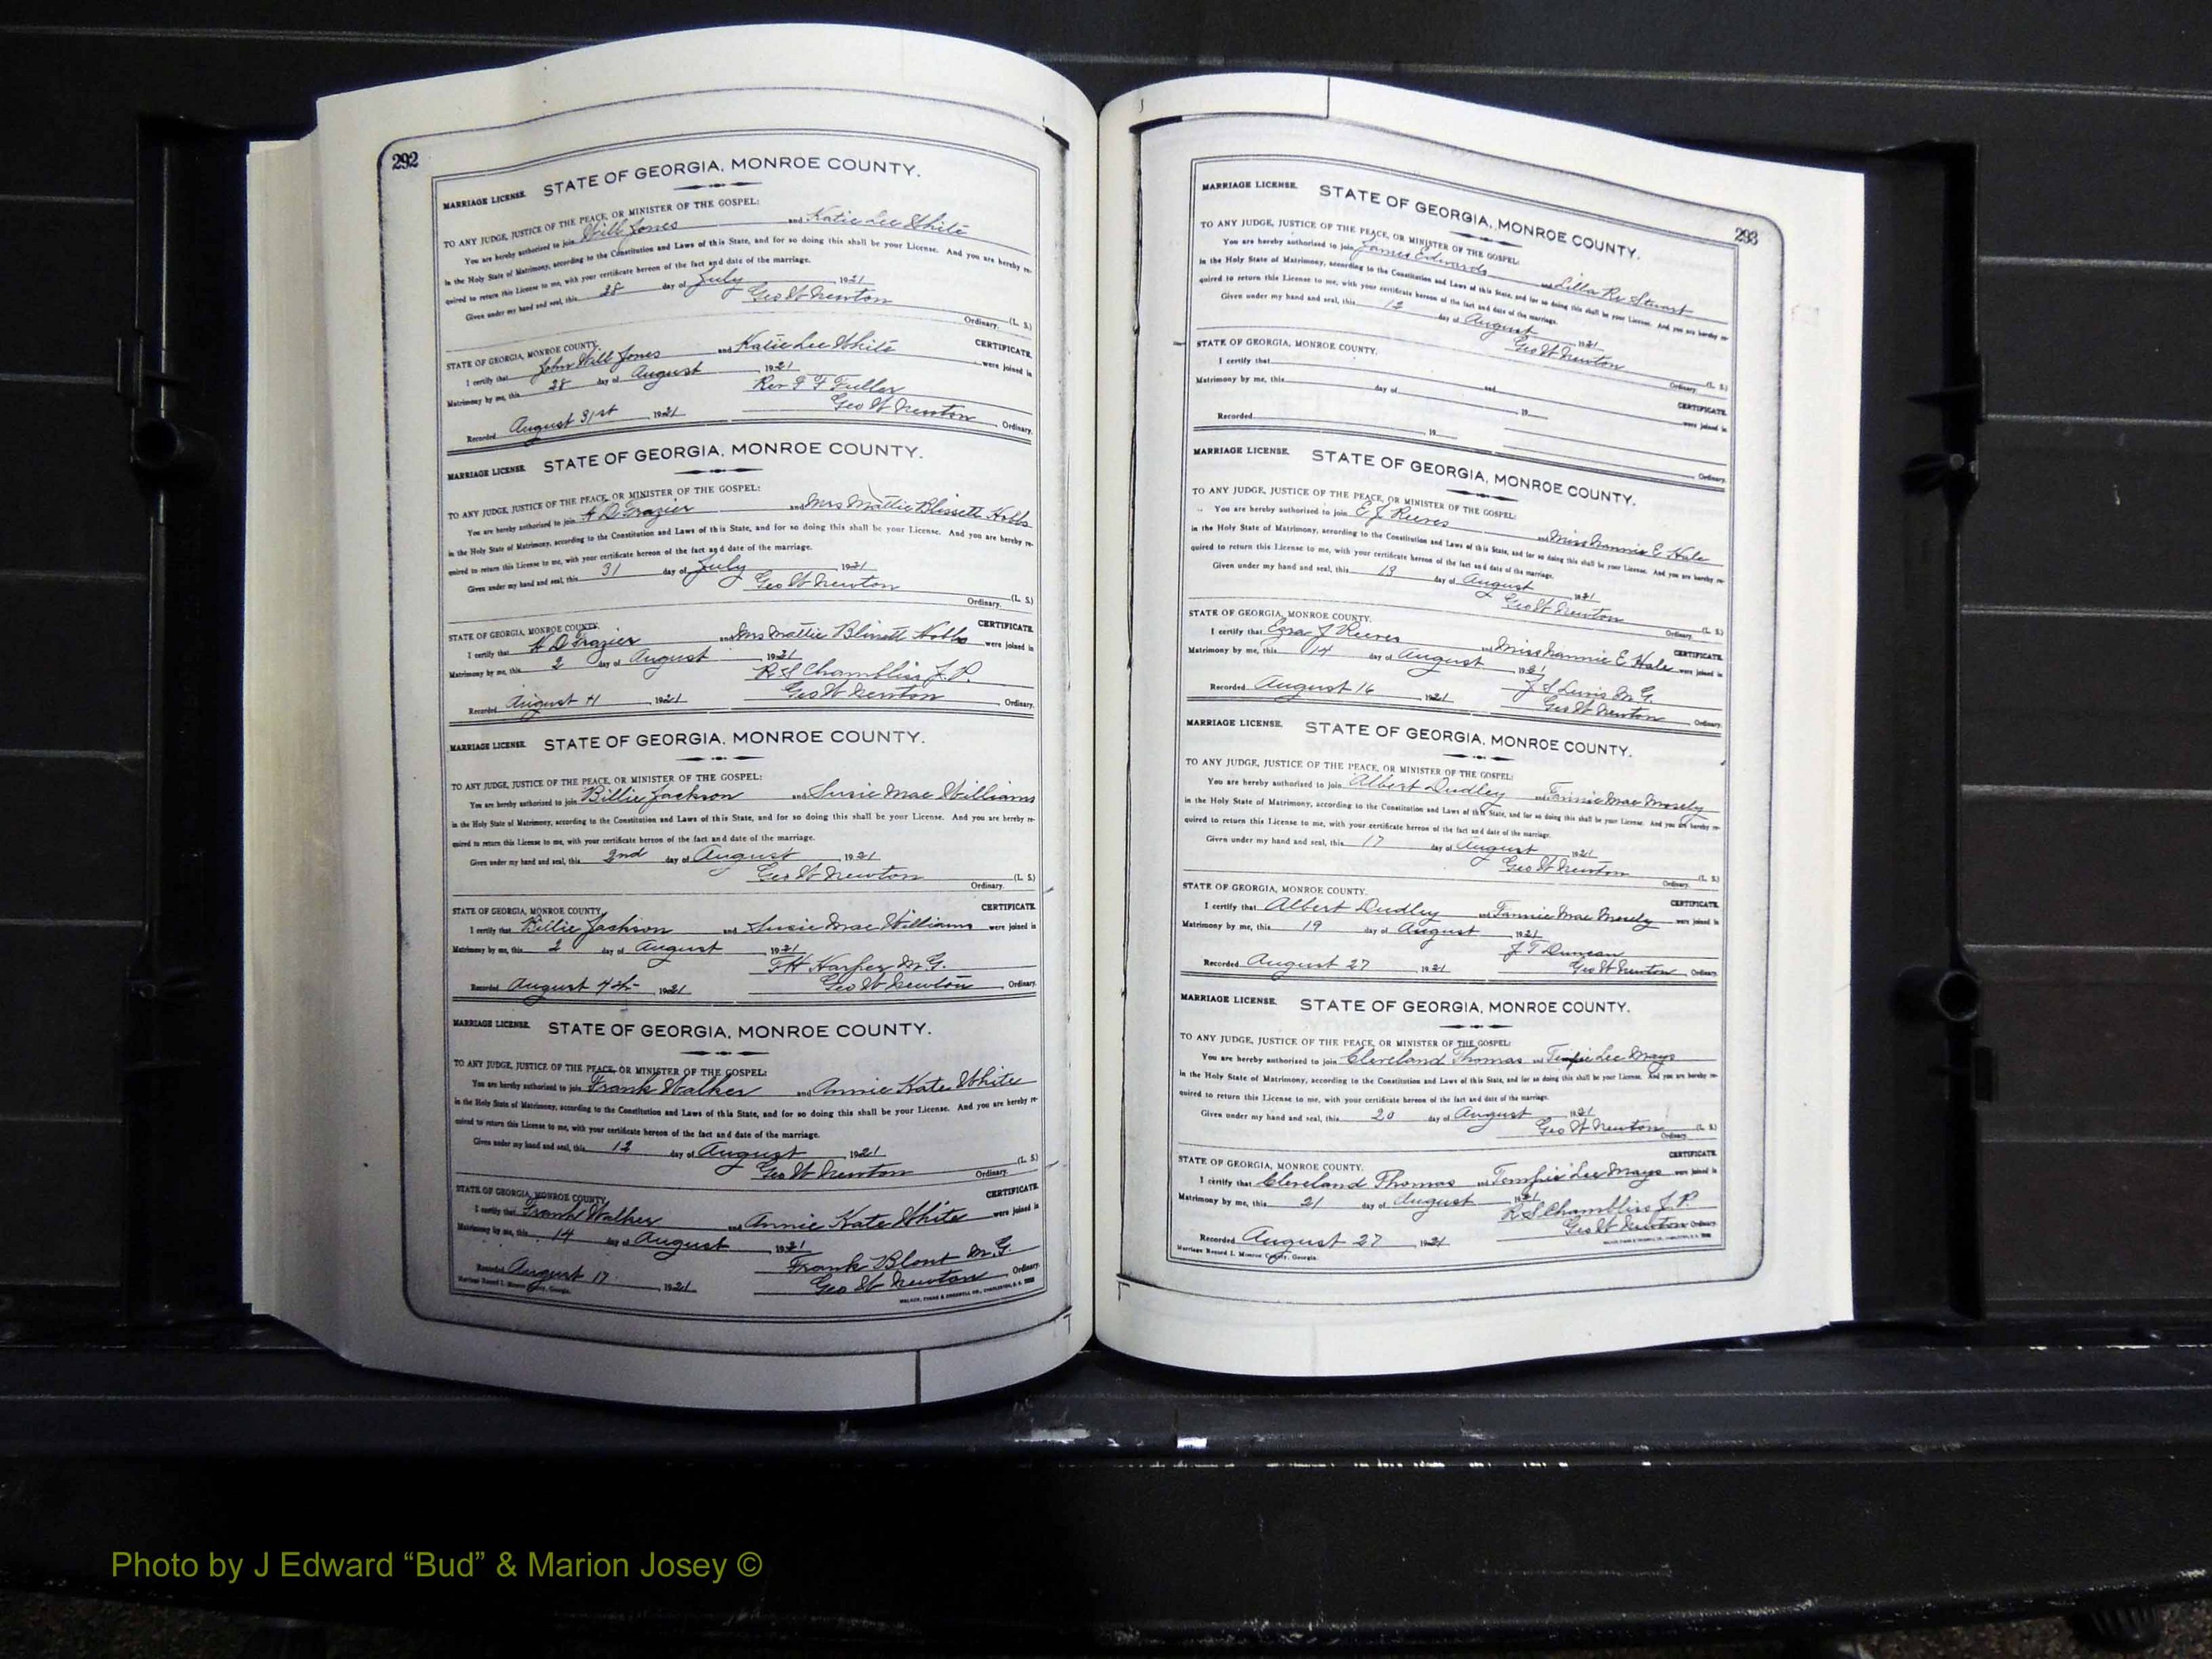 292
MARRIAGE LICENSE. STATE OF GEORGIA, MONROE COUNTY.
TO ANY JUDGE, JUSTICE OF THE PEACE, OR MINISTER OF THE GOSPEL:
You are hereby authorized to join Will Jones and Katie Lee White
in the Holy State of Matrimony, according to the Constitution and Laws of this State, and for so doing this shall be your License. And you are hereby re-
quired to return this License to me, with your certificate hereon of the fact and date of the marriage.
Given under my hand and seal, this 28 day of July 1921
Geo W Newton (L. S.)
Ordinary.
STATE OF GEORGIA, MONROE COUNTY. CERTIFICATE.
I certify that John Will Jones and Katie Lee White were joined in
Matrimony by me, this 28 day of August, 1921
Rev F F Fuller
Recorded August 31st, 1921 Geo W Newton, Ordinary.
MARRIAGE LICENSE. STATE OF GEORGIA, MONROE COUNTY.
TO ANY JUDGE, JUSTICE OF THE PEACE, OR MINISTER OF THE GOSPEL:
You are hereby authorized to join A D Frazier and Mrs Mattie Blissett Hobbs
in the Holy State of Matrimony, according to the Constitution and Laws of this State, and for so doing this shall be your License. And you are hereby re-
quired to return this License to me, with your certificate hereon of the fact and date of the marriage.
Given under my hand and seal, this 31 day of July, 1921
Geo W Newton (L. S.)
Ordinary.
STATE OF GEORGIA, MONROE COUNTY. CERTIFICATE.
I certify that A D Frazier and Mrs Mattie Blissett Hobbs were joined in
Matrimony by me, this 2 day of August, 1921
R S Chambliss J. P.
Recorded August 4, 1921 Geo W Newton, Ordinary.
MARRIAGE LICENSE. STATE OF GEORGIA, MONROE COUNTY.
TO ANY JUDGE, JUSTICE OF THE PEACE, OR MINISTER OF THE GOSPEL:
You are hereby authorized to join Billie Jackson and Susie Mae Williams
in the Holy State of Matrimony, according to the Constitution and Laws of this State, and for so doing this shall be your License. And you are hereby re-
quired to return this License to me, with your certificate hereon of the fact and date of the marriage.
Given under my hand and seal, this 2nd day of August, 1921
Geo W Newton (L. S.)
Ordinary.
STATE OF GEORGIA, MONROE COUNTY. CERTIFICATE.
I certify that Billie Jackson and Susie Mae Williams were joined in
Matrimony by me, this 2 day of August, 1921
F H Harper M. G.
Recorded August 4th, 1921 Geo W Newton, Ordinary.
MARRIAGE LICENSE. STATE OF GEORGIA, MONROE COUNTY.
TO ANY JUDGE, JUSTICE OF THE PEACE, OR MINISTER OF THE GOSPEL:
You are hereby authorized to join Frank Walker and Annie Kate White
in the Holy State of Matrimony, according to the Constitution and Laws of this State, and for so doing this shall be your License. And you are hereby re-
quired to return this License to me, with your certificate hereon of the fact and date of the marriage.
Given under my hand and seal, this 12 day of August, 1921
Geo W Newton (L. S.)
Ordinary.
STATE OF GEORGIA, MONROE COUNTY. CERTIFICATE.
I certify that Frank Walker and Annie Kate White were joined in
Matrimony by me, this 14 day of August, 1921
Frank Blont M. G.
Recorded August 17, 1921 Geo W Newton, Ordinary.
Marriage Record I. Monroe County, Georgia. WALKER, EVANS & COGSWELL CO., CHARLESTON, S. C.
293
MARRIAGE LICENSE. STATE OF GEORGIA, MONROE COUNTY.
TO ANY JUDGE, JUSTICE OF THE PEACE, OR MINISTER OF THE GOSPEL:
You are hereby authorized to join James Edwards and Lilla Stewart
in the Holy State of Matrimony, according to the Constitution and Laws of this State, and for so doing this shall be your License. And you are hereby re-
quired to return this License to me, with your certificate hereon of the fact and date of the marriage.
Given under my hand and seal, this 12 day of August, 1921
Geo W Newton (L. S.)
Ordinary.
STATE OF GEORGIA, MONROE COUNTY. CERTIFICATE.
I certify that and were joined in
Matrimony by me, this day of, 19
Recorded, 19 Ordinary.
MARRIAGE LICENSE. STATE OF GEORGIA, MONROE COUNTY.
TO ANY JUDGE, JUSTICE OF THE PEACE, OR MINISTER OF THE GOSPEL:
You are hereby authorized to join E J Reeves and Miss Nannie E Hale
in the Holy State of Matrimony, according to the Constitution and Laws of this State, and for so doing this shall be your License. And you are hereby re-
quired to return this License to me, with your certificate hereon of the fact and date of the marriage.
Given under my hand and seal, this 13 day of August, 1921
Geo W Newton (L. S.)
Ordinary.
STATE OF GEORGIA, MONROE COUNTY. CERTIFICATE.
I certify that Ezra J Reeves and Miss Nannie E Hale were joined in
Matrimony by me, this 14 day of August, 1921
J S Lewis M. G.
Recorded August 16, 1921 Geo W Newton, Ordinary.
MARRIAGE LICENSE. STATE OF GEORGIA, MONROE COUNTY.
TO ANY JUDGE, JUSTICE OF THE PEACE, OR MINISTER OF THE GOSPEL:
You are hereby authorized to join Albert Dudley and Fannie Mae Mosely
in the Holy State of Matrimony, according to the Constitution and Laws of this State, and for so doing this shall be your License. And you are hereby re-
quired to return this License to me, with your certificate hereon of the fact and date of the marriage.
Given under my hand and seal, this 17 day of August, 1921
Geo W Newton (L. S.)
Ordinary.
STATE OF GEORGIA, MONROE COUNTY. CERTIFICATE.
I certify that Albert Dudley and Fannie Mae Mosely were joined in
Matrimony by me, this 19 day of August, 1921
J T Duncan
Recorded August 27, 1921 Geo W Newton, Ordinary.
MARRIAGE LICENSE. STATE OF GEORGIA, MONROE COUNTY.
TO ANY JUDGE, JUSTICE OF THE PEACE, OR MINISTER OF THE GOSPEL:
You are hereby authorized to join Cleveland Thomas and Tempie Lee Mays
in the Holy State of Matrimony, according to the Constitution and Laws of this State, and for so doing this shall be your License. And you are hereby re-
quired to return this License to me, with your certificate hereon of the fact and date of the marriage.
Given under my hand and seal, this 20 day of August, 1921
Geo W Newton (L. S.)
Ordinary.
STATE OF GEORGIA, MONROE COUNTY. CERTIFICATE.
I certify that Cleveland Thomas and Tempie Lee Mays were joined in
Matrimony by me, this 21 day of August, 1921
R S Chambliss J. P.
Recorded August 27, 1921 Geo W Newton Ordinary.
Marriage Record I. Monroe County, Georgia. WALKER, EVANS & COGSWELL CO., CHARLESTON, S. C.
Photo by J Edward “Bud” & Marion Josey ©